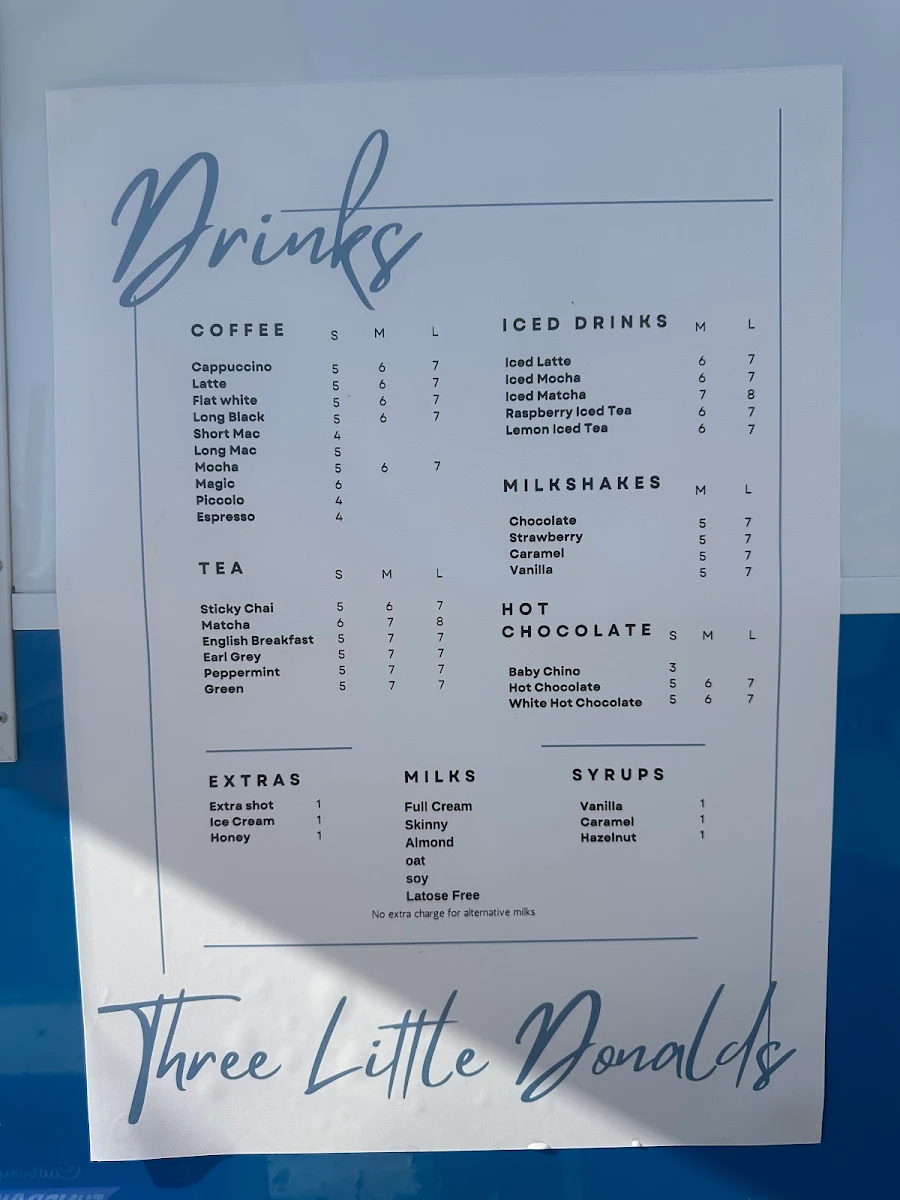 Drinks
COFFEE S M L
Cappuccino 5 6 7
Latte 5 6 7
Flat white 5 6 7
Long Black 5 6 7
Short Mac 4
Long Mac 5
Mocha 5 6 7
Magic 6
Piccolo 4
Espresso 4
TEA S M L
Sticky Chai 5 6 7
Matcha 6 7 8
English Breakfast 5 7 7
Earl Grey 5 7 7
Peppermint 5 7 7
Green 5 7 7
ICED DRINKS M L
Iced Latte 6 7
Iced Mocha 6 7
Iced Matcha 7 8
Raspberry Iced Tea 6 7
Lemon Iced Tea 6 7
MILKSHAKES M L
Chocolate 5 7
Strawberry 5 7
Caramel 5 7
Vanilla 5 7
HOT
CHOCOLATE S M L
Baby Chino 3
Hot Chocolate 5 6 7
White Hot Chocolate 5 6 7
EXTRAS
Extra shot 1
Ice Cream 1
Honey 1
MILKS
Full Cream
Skinny
Almond
oat
soy
Latose Free
No extra charge for alternative milks
SYRUPS
Vanilla 1
Caramel 1
Hazelnut 1
Three Little Donalds